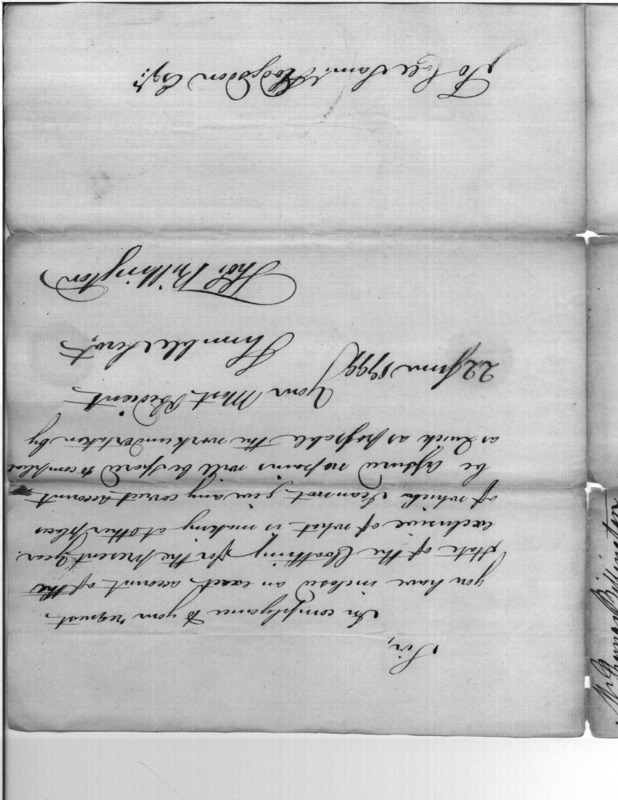 Sir,
In complyance to your request
you have inclosed an exact account of the
State of the Cloathing for the present year.
exclusive of what is making at other places
of which I cannot give any correct account
be assured no pains will be spared to compleat
as Quick as possable the work undertaken by
Your Most Obedient
Humble Servt.
22 June 1799
Thos. Billington
To Coll Saml. Hodgsdon Esqr.
Thomas Billington